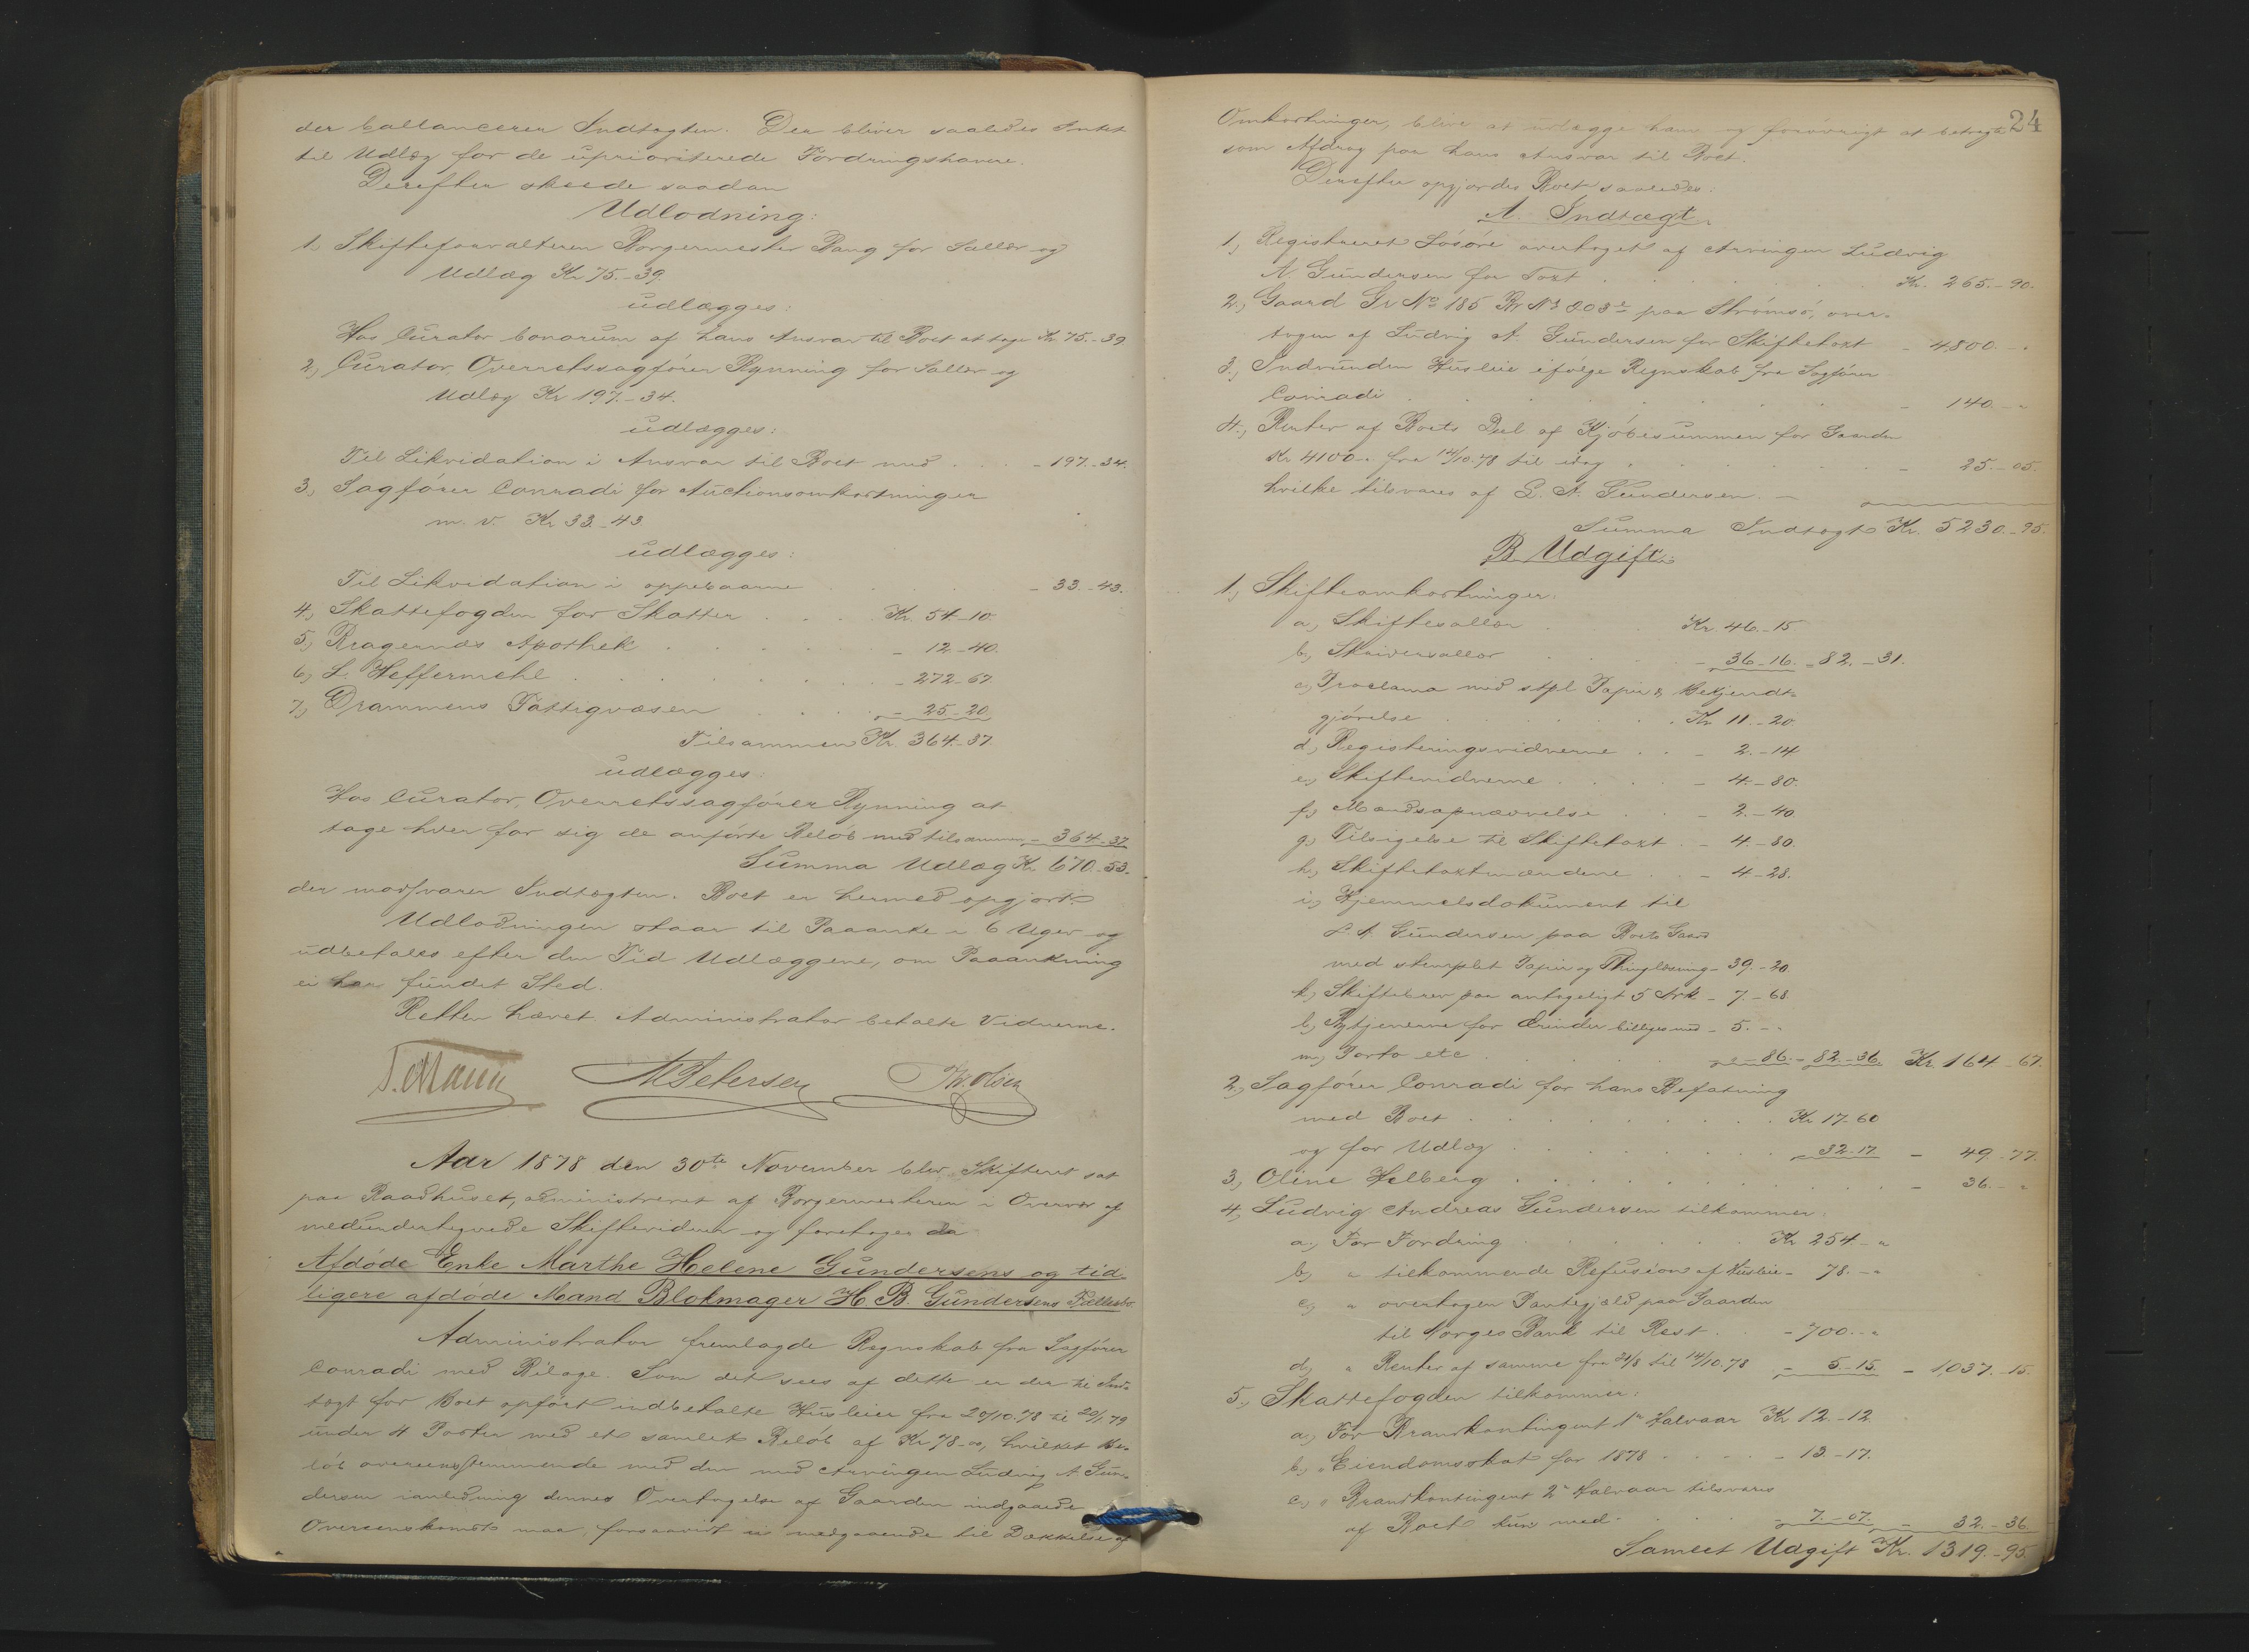 der ballancerer Indtægten. Der bliver saaledes Intet
til Udlæg for de uprioriterede Fordringshavere.
Derefter skeede saadan
Udlodning:
1, Skifteforvalteren Borgermester Bang for Sallær og
Udlæg Kr 75.-39.
udlægges:
Hos Curator bonorum af hans Ansvar til Boet at tage Kr 75.-39
2, Curator, Overretssagfører Rynning for Sallær og
Udlæg Kr 197.-34.
udlægges:
Til Likvidation i Ansvar til Boet med . . . - 197.-34.
3, Sagfører Conradi for Auctionsomkostninger
m. v. Kr 33.-43
udlægges:
Til Likvidation i oppebaarne . . . - 33.-43.
4, Skattefogden for Skatter . . . . Kr. 54.-10.
5, Bragernæs Apothek . . . . . - 12.-40.
6, L. Heffermehl . . . . . . - 272-67.
7, Drammens Fattigvæsen . . . . - 25.-20.
Tilsammen Kr. 364.-37.
udlægges:
Hos Curator, Overretssagfører Rynning at
tage hver for sig de anførte Beløb med tilsammen - 364.-37
Summa Udlæg Kr 670.-53.
der modsvarer Indtægten. Boet er hermed opgjort.
Udlodningen staar til Paaanke i 6 Uger og
udbetales efter den Tid Udlæggene, om Paaankning
ei har fundet Sted.
Retten hævet. Administrator betalte Vidnerne.
M Petersen Th. Olsen
Aar 1878 den 30te November blev Skifteret sat
paa Raadhuset, administreret af Borgermesteren i Overvær af
medundertegnede Skiftevidner og foretoges da
Afdøde Enke Marthe Helene Gundersens og tid-
ligere afdøde Mand Blokmager H. B. Gundersens Fællesbo
Administrator fremlagde Regnskab fra Sagfører
Conradi med Bilage. Som det sees af dette er der til Ind-
tægt for Boet opført indbetalte Huusleier fra 20/10.78 til 20/1 79
under 4 Poster med et samlet Beløb af Kr 78-00, hvilket Be-
løb overeensstemmende med den med Arvingen Ludvig A. Gun-
dersen ianledning dennes Overtagelse af Gaarden indgaaede
Overeenskomst maa, forsaavidt ei medgaaende til Dækkelse af
24
Omkostninger, blive at udlægge ham og forøvrigt at betragte
som Afdrag paa hans Ansvar til Boet.
Derefter opgjordes Boet saaledes:
A. Indtægt.
1, Registreret Løsøre overtaget af Arvingen Ludvig
A. Gundersen for Taxt . . . . . . Kr. 265.-90.
2, Gaard Gr No 185 Br No 203 a paa Strømsø, over-
tagen af Ludvig A. Gundersen for Skiftetaxt - 4,800.-"
3, Indvunden Husleie ifølge Regnskab fra Sagfører
Conradi . . . . . . . . - 140.-"
4, Renter af Boets Deel af Kjøbesummen for Gaarden
Kr 4100-" fra 14/10.78 til idag . . . . . - 25.-05.
hvilke tilsvares af L. A. Gundersen. -
Summa Indtægt Kr. 5230.-95.
B. Udgift.
1, Skifteomkostninger.
a, Skiftesallær . . Kr. 46.-15
b, Skriversallær . . - 36-16. - 82.-31.
c, Proclama med stpl Papir & Bekjendt-
gjørelse . . . . . Kr. 11.-20.
d, Registeringsvidnerne . . - 2.-14
e, Skiftevidnerne . . . - 4.-80.
f, Mandsopnævnelse . . - 2.-40.
g, Tilsigelse til Skiftetaxt . - 4.-80.
h, Skiftetaxtmændene . . - 4-28.
i, Hjemmelsdokument til
L. A. Gundersen paa Boets Gaard
med stemplet Papir og Thinglæsning - 39.-20.
k, Skiftebrev paa antageligt 5 Ark - 7.-68.
l, Bytjenerne for Ærinder billiges med - 5.-"
m, Porto etc . . . . - "-86. - 82.-36. Kr. 164-67.
2, Sagfører Conradi for hans Befatning
med Boet . . . . . . . Kr 17-60
og for Udlæg . . . . . . 32-17. - 49.-77.
3, Oline Helberg . . . . . . . . - 36.-"
4, Ludvig Andreas Gundersen tilkommer.
a, For Fordring . . . . . Kr 254-"
b, " tilkommende Refusion af Husleie - 78.-"
c, " overtagen Pantegjæld paa Gaarden
til Norges Bank til Rest . . - 700.-"
d, " Renter af samme fra 21/8 til 14/10.78 - 5-15. - 1,037.-15.
5, Skattefogden tilkommer:
a, For Brandkontingent 1ste Halvaar Kr 12.-12.
b, " Eiendomsskat for 1878 . . . . - 13.-17.
c, " Brandkontingent 2det Halvaar tilsvares
af Boet kun med . . . . . 7.-07. - 32.-36.
Samlet Udgift Kr. 1319.-95.